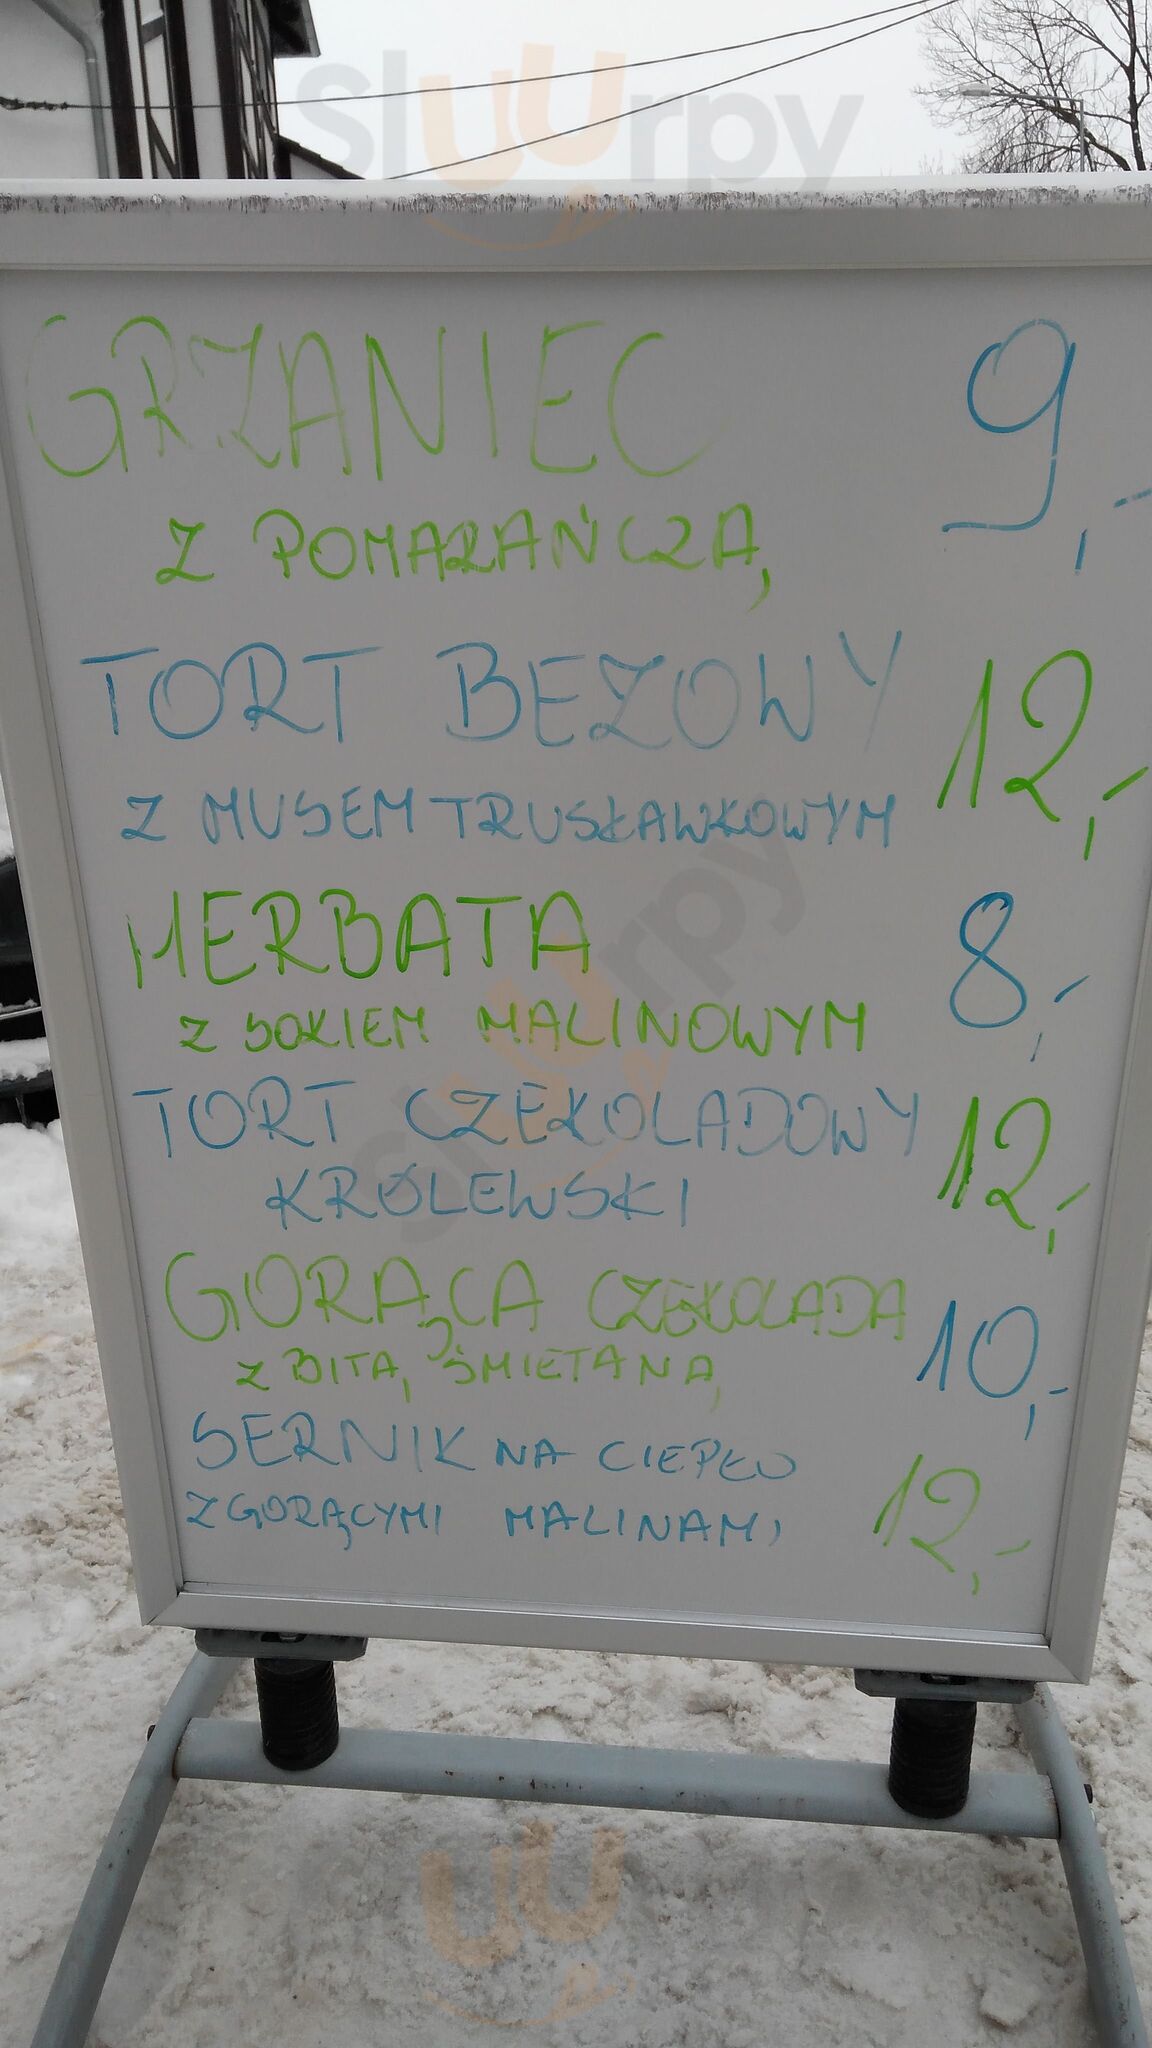 Sluurpy
GRZANIEC 9,-
Z POMARAŃCZĄ
TORT BEZOWY 12,-
Z MUSEM TRUSŁAWKOWYM
HERBATA 8,-
Z SOKIEM MALINOWYM
Sluurpy
TORT CZEKOLADOWY 12,-
KRÓLEWSKI
GORĄCA CZEKOLADA 10,-
Z BITĄ ŚMIETANĄ
SERNIK NA CIEPŁO 12,-
Z GORĄCYMI MALINAMI